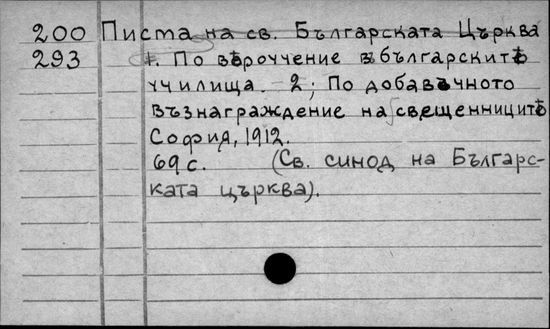 200 Писта на св. Българската Църква
293 1. По вѣроучение в българскитѣ
училища. 2; По добавъчното
възнаграждение на свещенницитѣ
София, 1912.
69 с. (Св. синод на Българс-
ката църква).